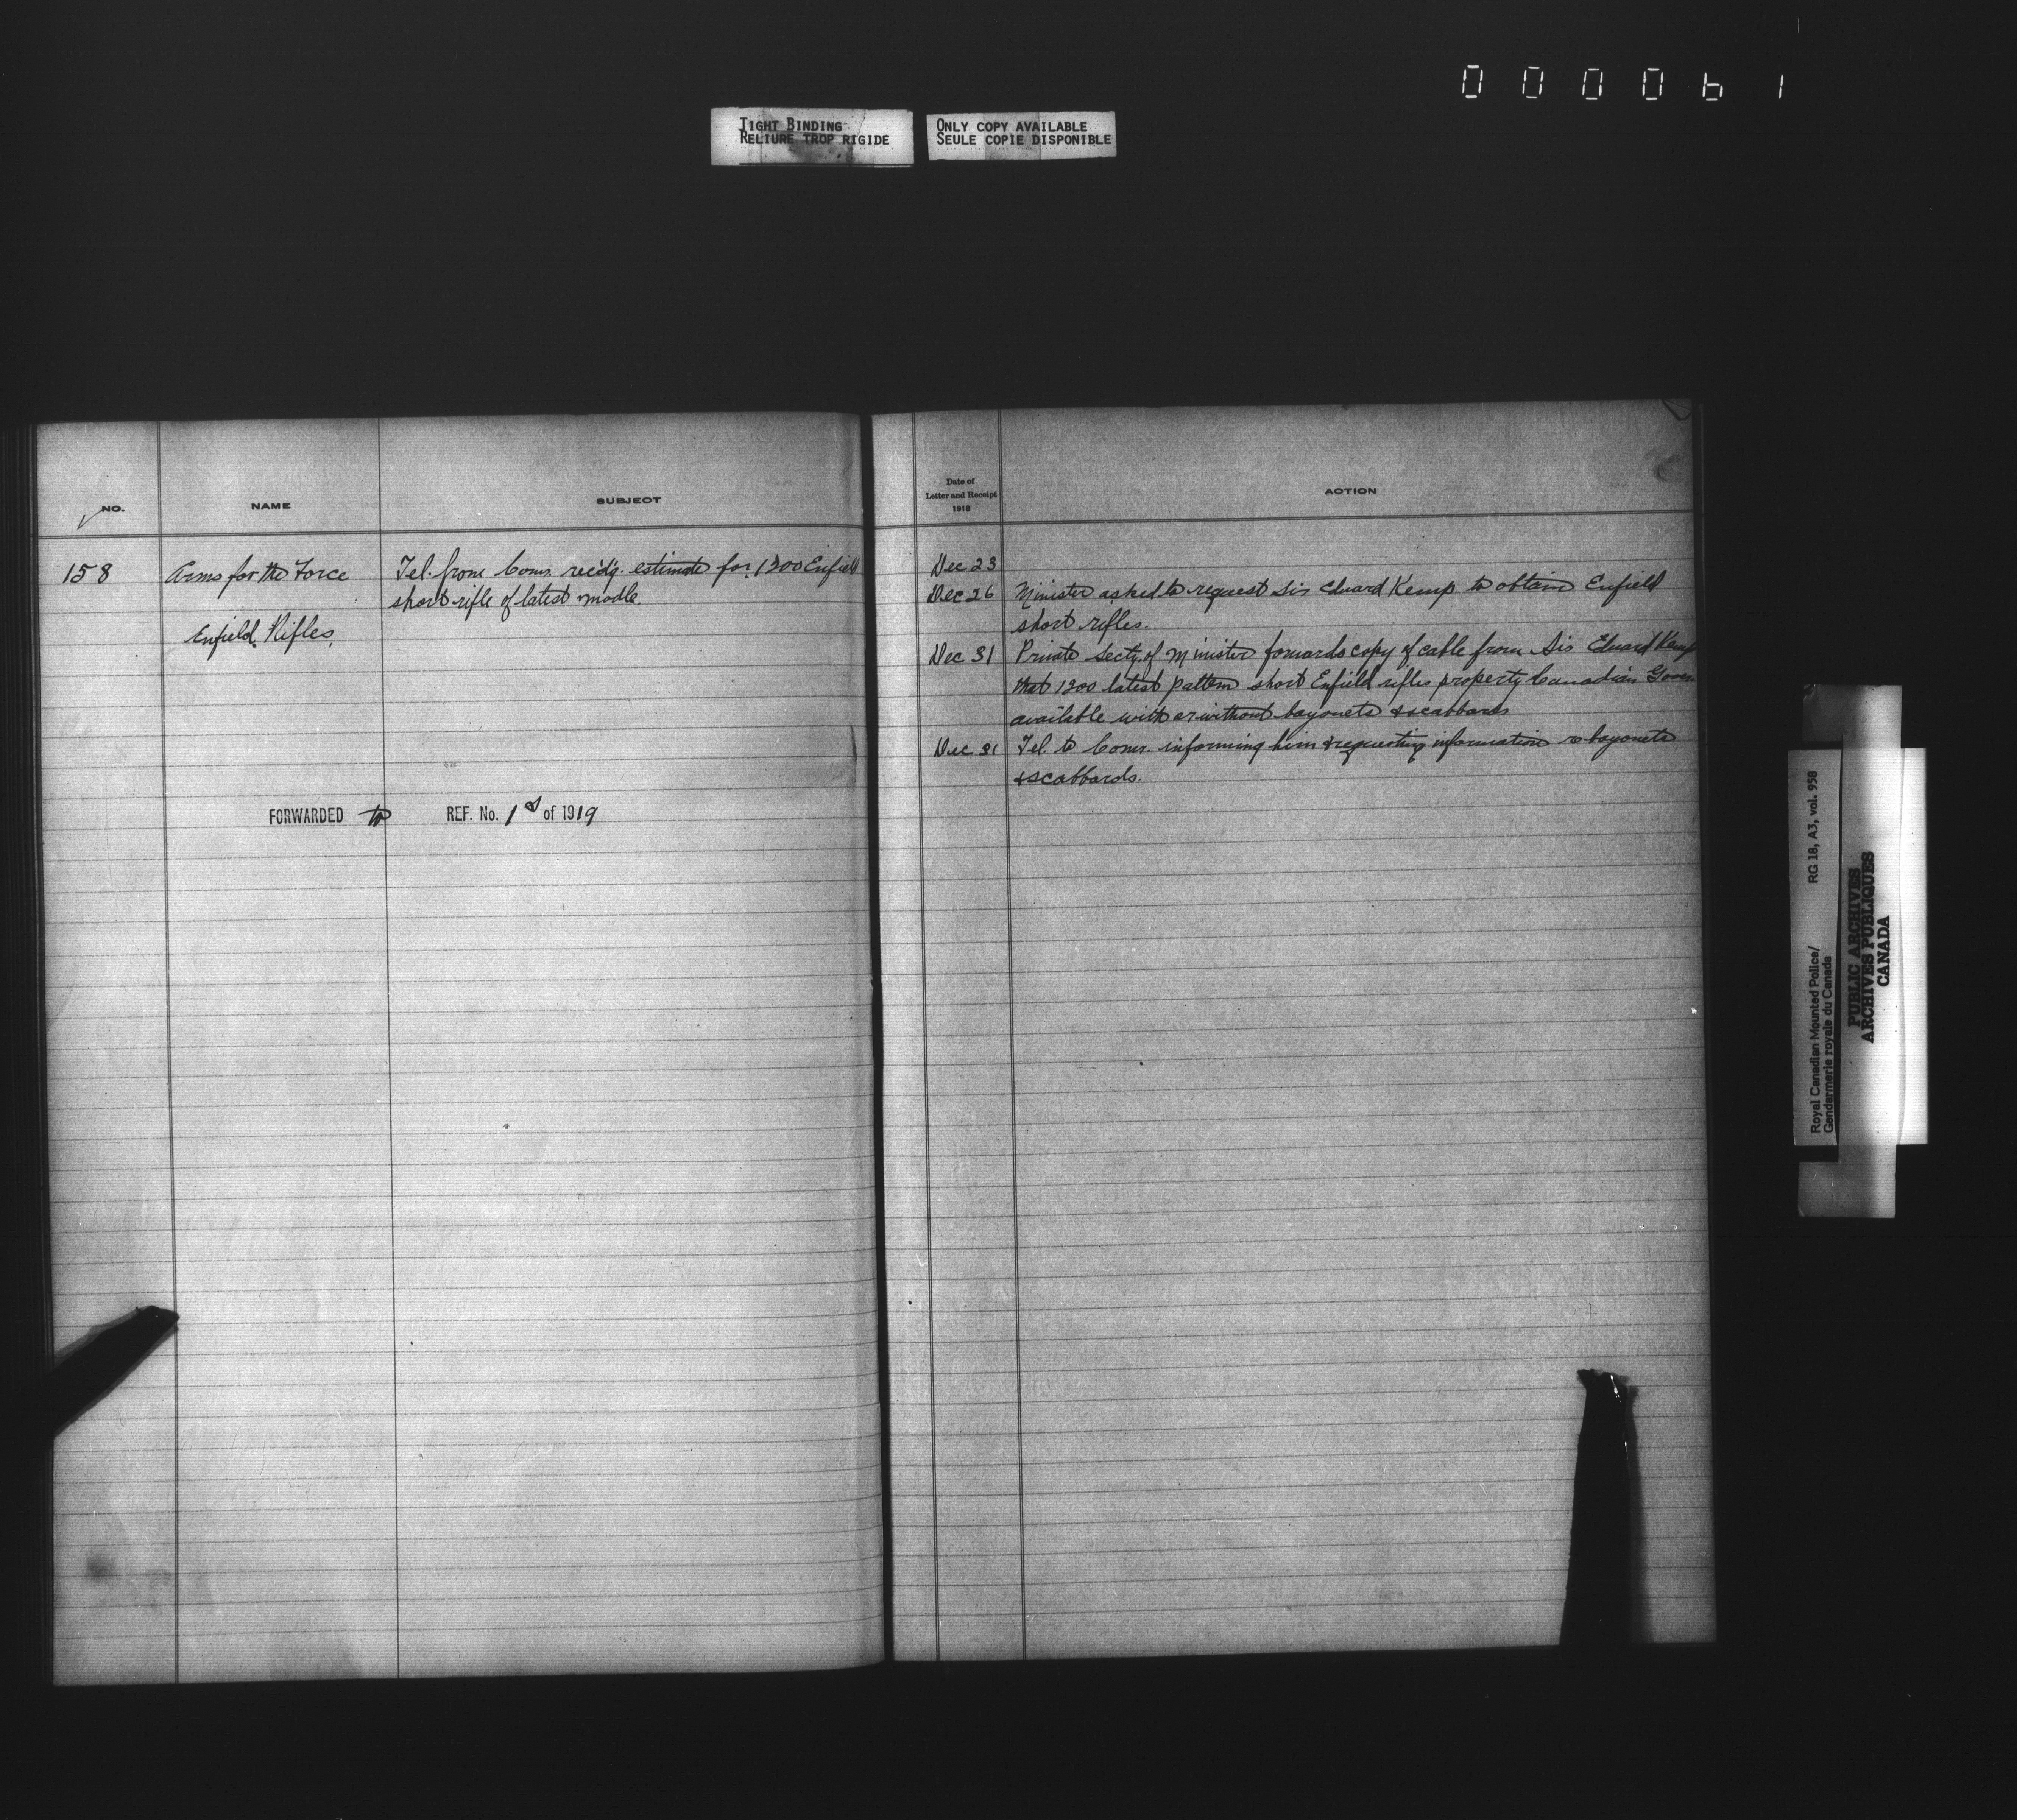 000061
TIGHT BINDING
RELIURE TROP RIGIDE
ONLY COPY AVAILABLE
SEULE COPIE DISPONIBLE
NO.
NAME
SUBJECT
158
Arms for the Force
Enfield Rifles.
Tel. from Comr. estimate for 1200 Enfield
short rifle of latest modle.
FORWARDED to REF. No. 1 of 1919
Date of
Letter and Receipt
1918
ACTION
Dec 23
Dec 26 Minister asked to request Sir Edward Kemp to obtain Enfield
short rifles.
Dec 31 Private Secty. of Minister forwards copy of cable from Sir Edward Kemp
that 1200 latest pattern short Enfield rifles property Canadian
available with or without bayonets & scabbards
Dec 31 Tel. to Comr. informing him & requesting information re bayonets
& scabbards.
Royal Canadian Mounted Police/ RG 18, A3, vol. 958
Gendarmerie royale du Canada
PUBLIC ARCHIVES
ARCHIVES PUBLIQUES
CANADA